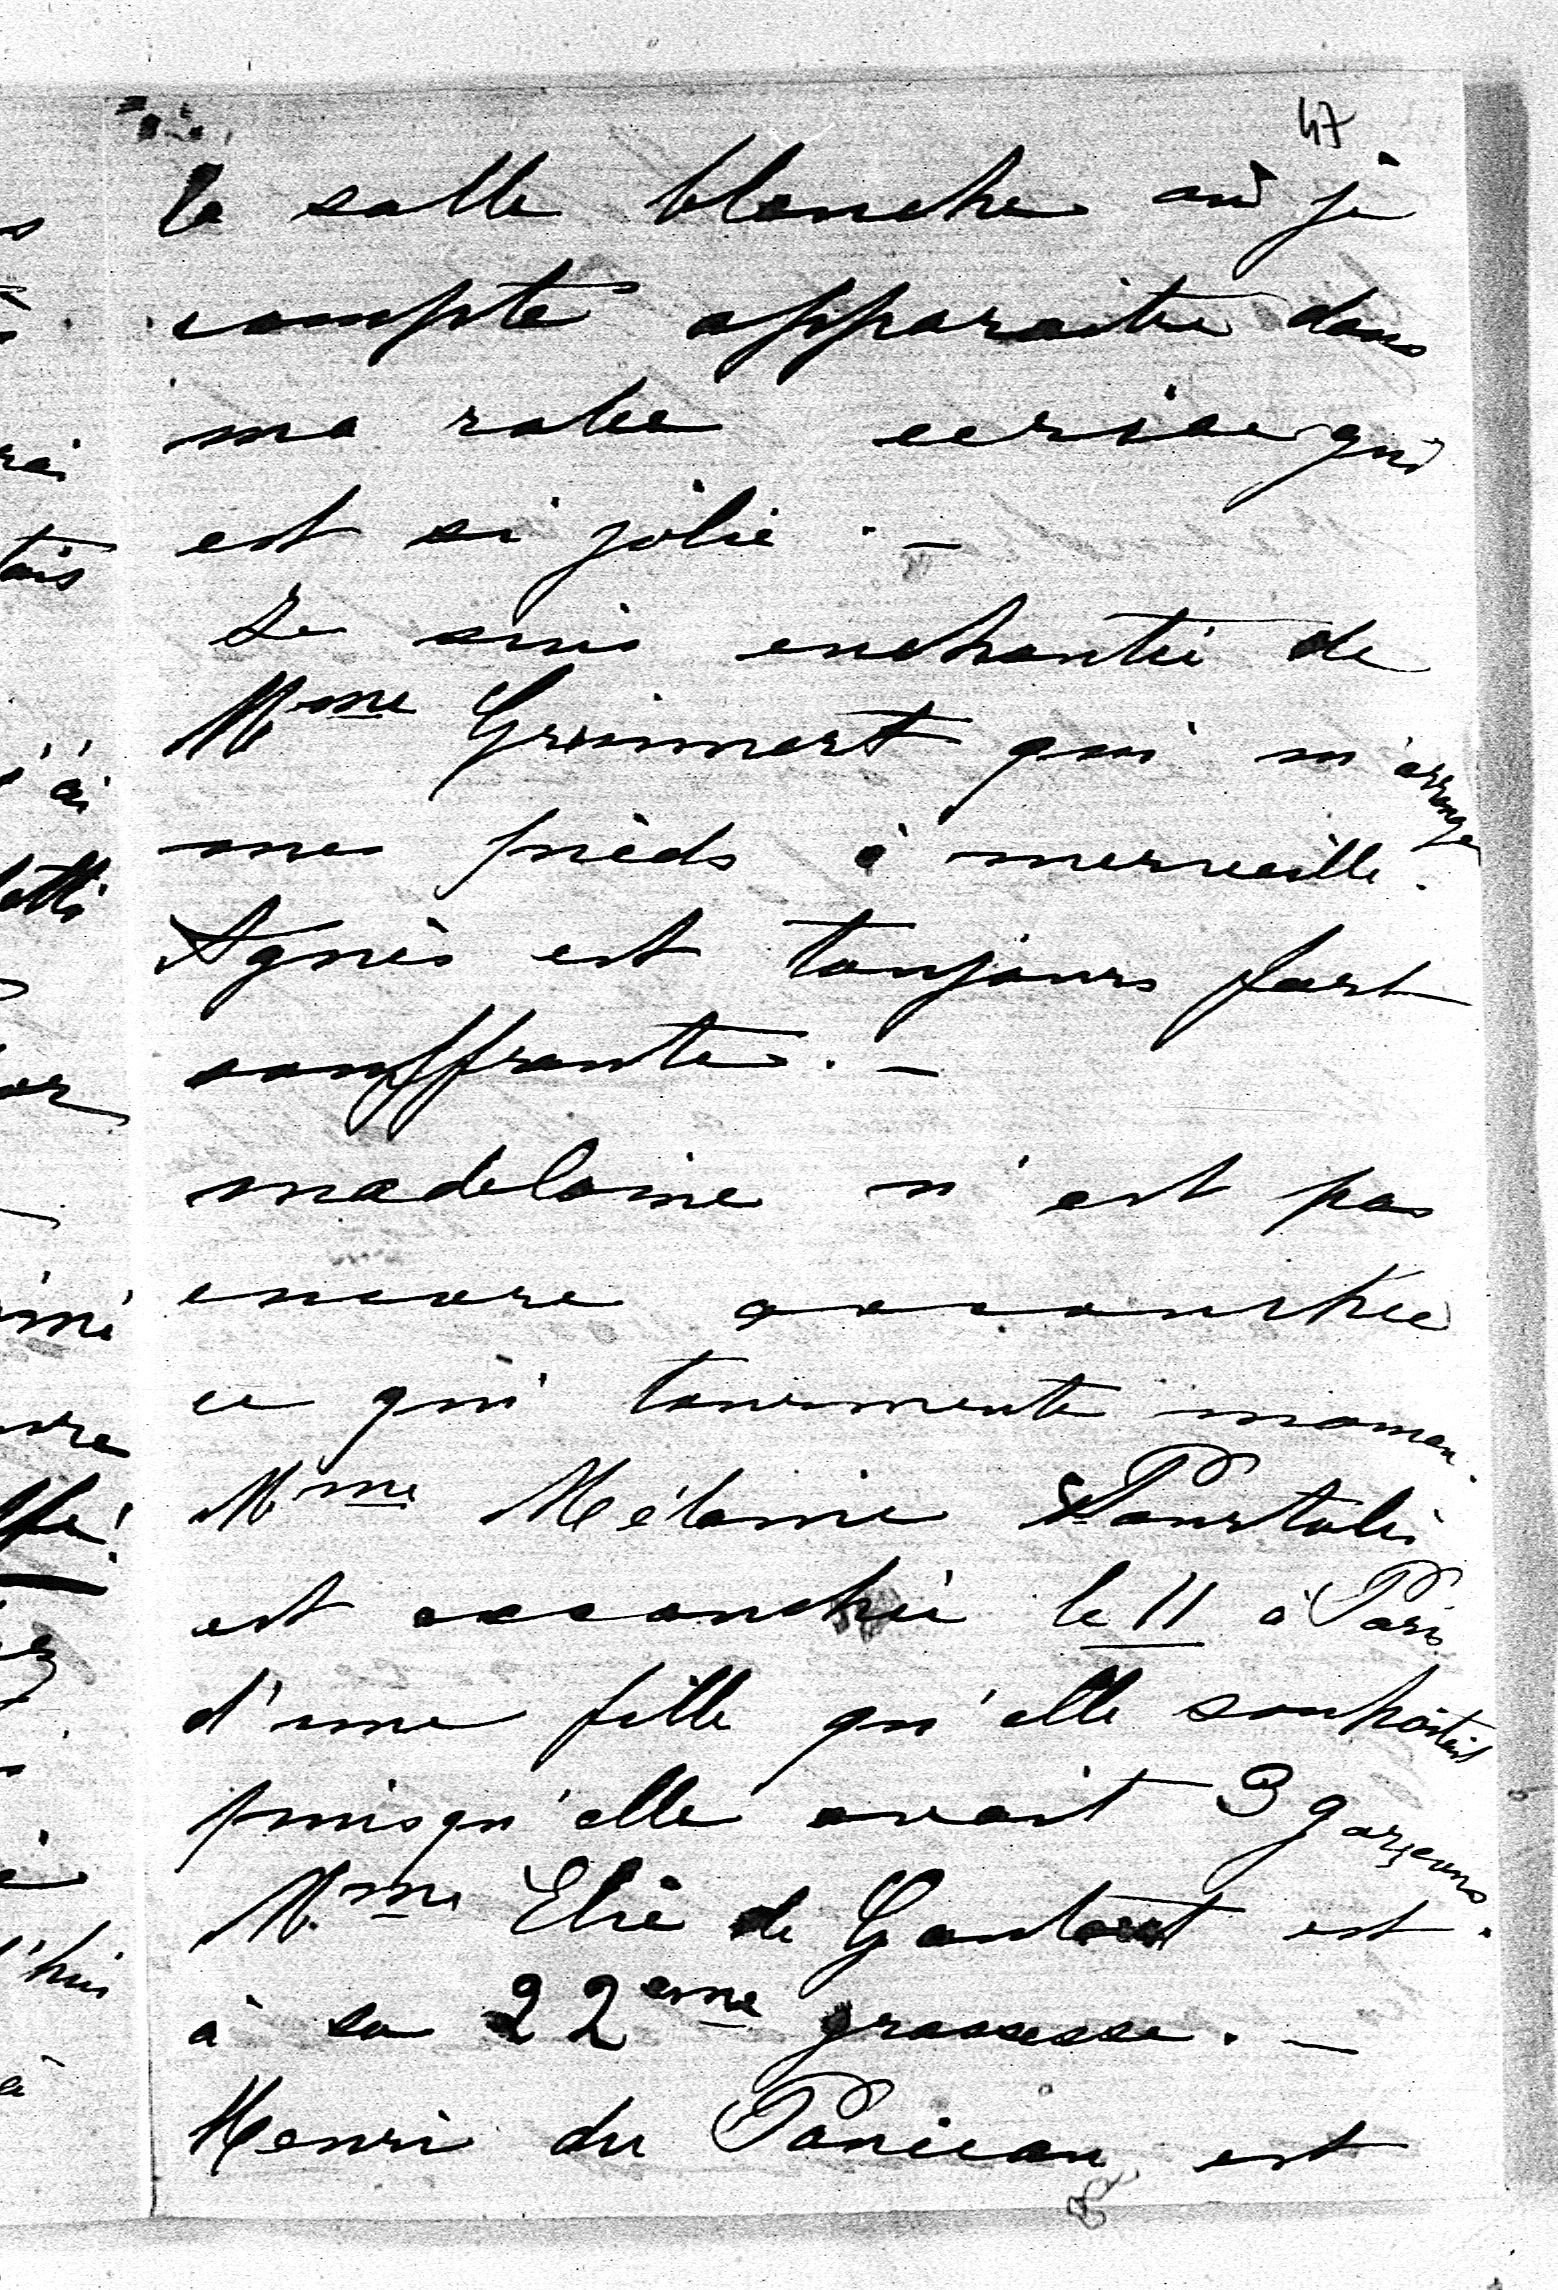 47
la salle blanche où je
compte apparaitre dans
ma robe cerise qui
est si jolie . –
Je suis enchantée de
Mme Grimmert qui m'arrange
mes pieds à merveille.
Agnès est toujours fort
souffrante. –
madelaine n'est pas
encore accouchée
ce qui tourmente maman.
Mme Mélanie Pourtalès
est accouchée le 11 à Paris
d'une fille qu'elle souhaitait
puisqu'elle avait 3 garçons.
Mme Elie de Gontaut est
à sa 22eme grossesse. –
Henri du est